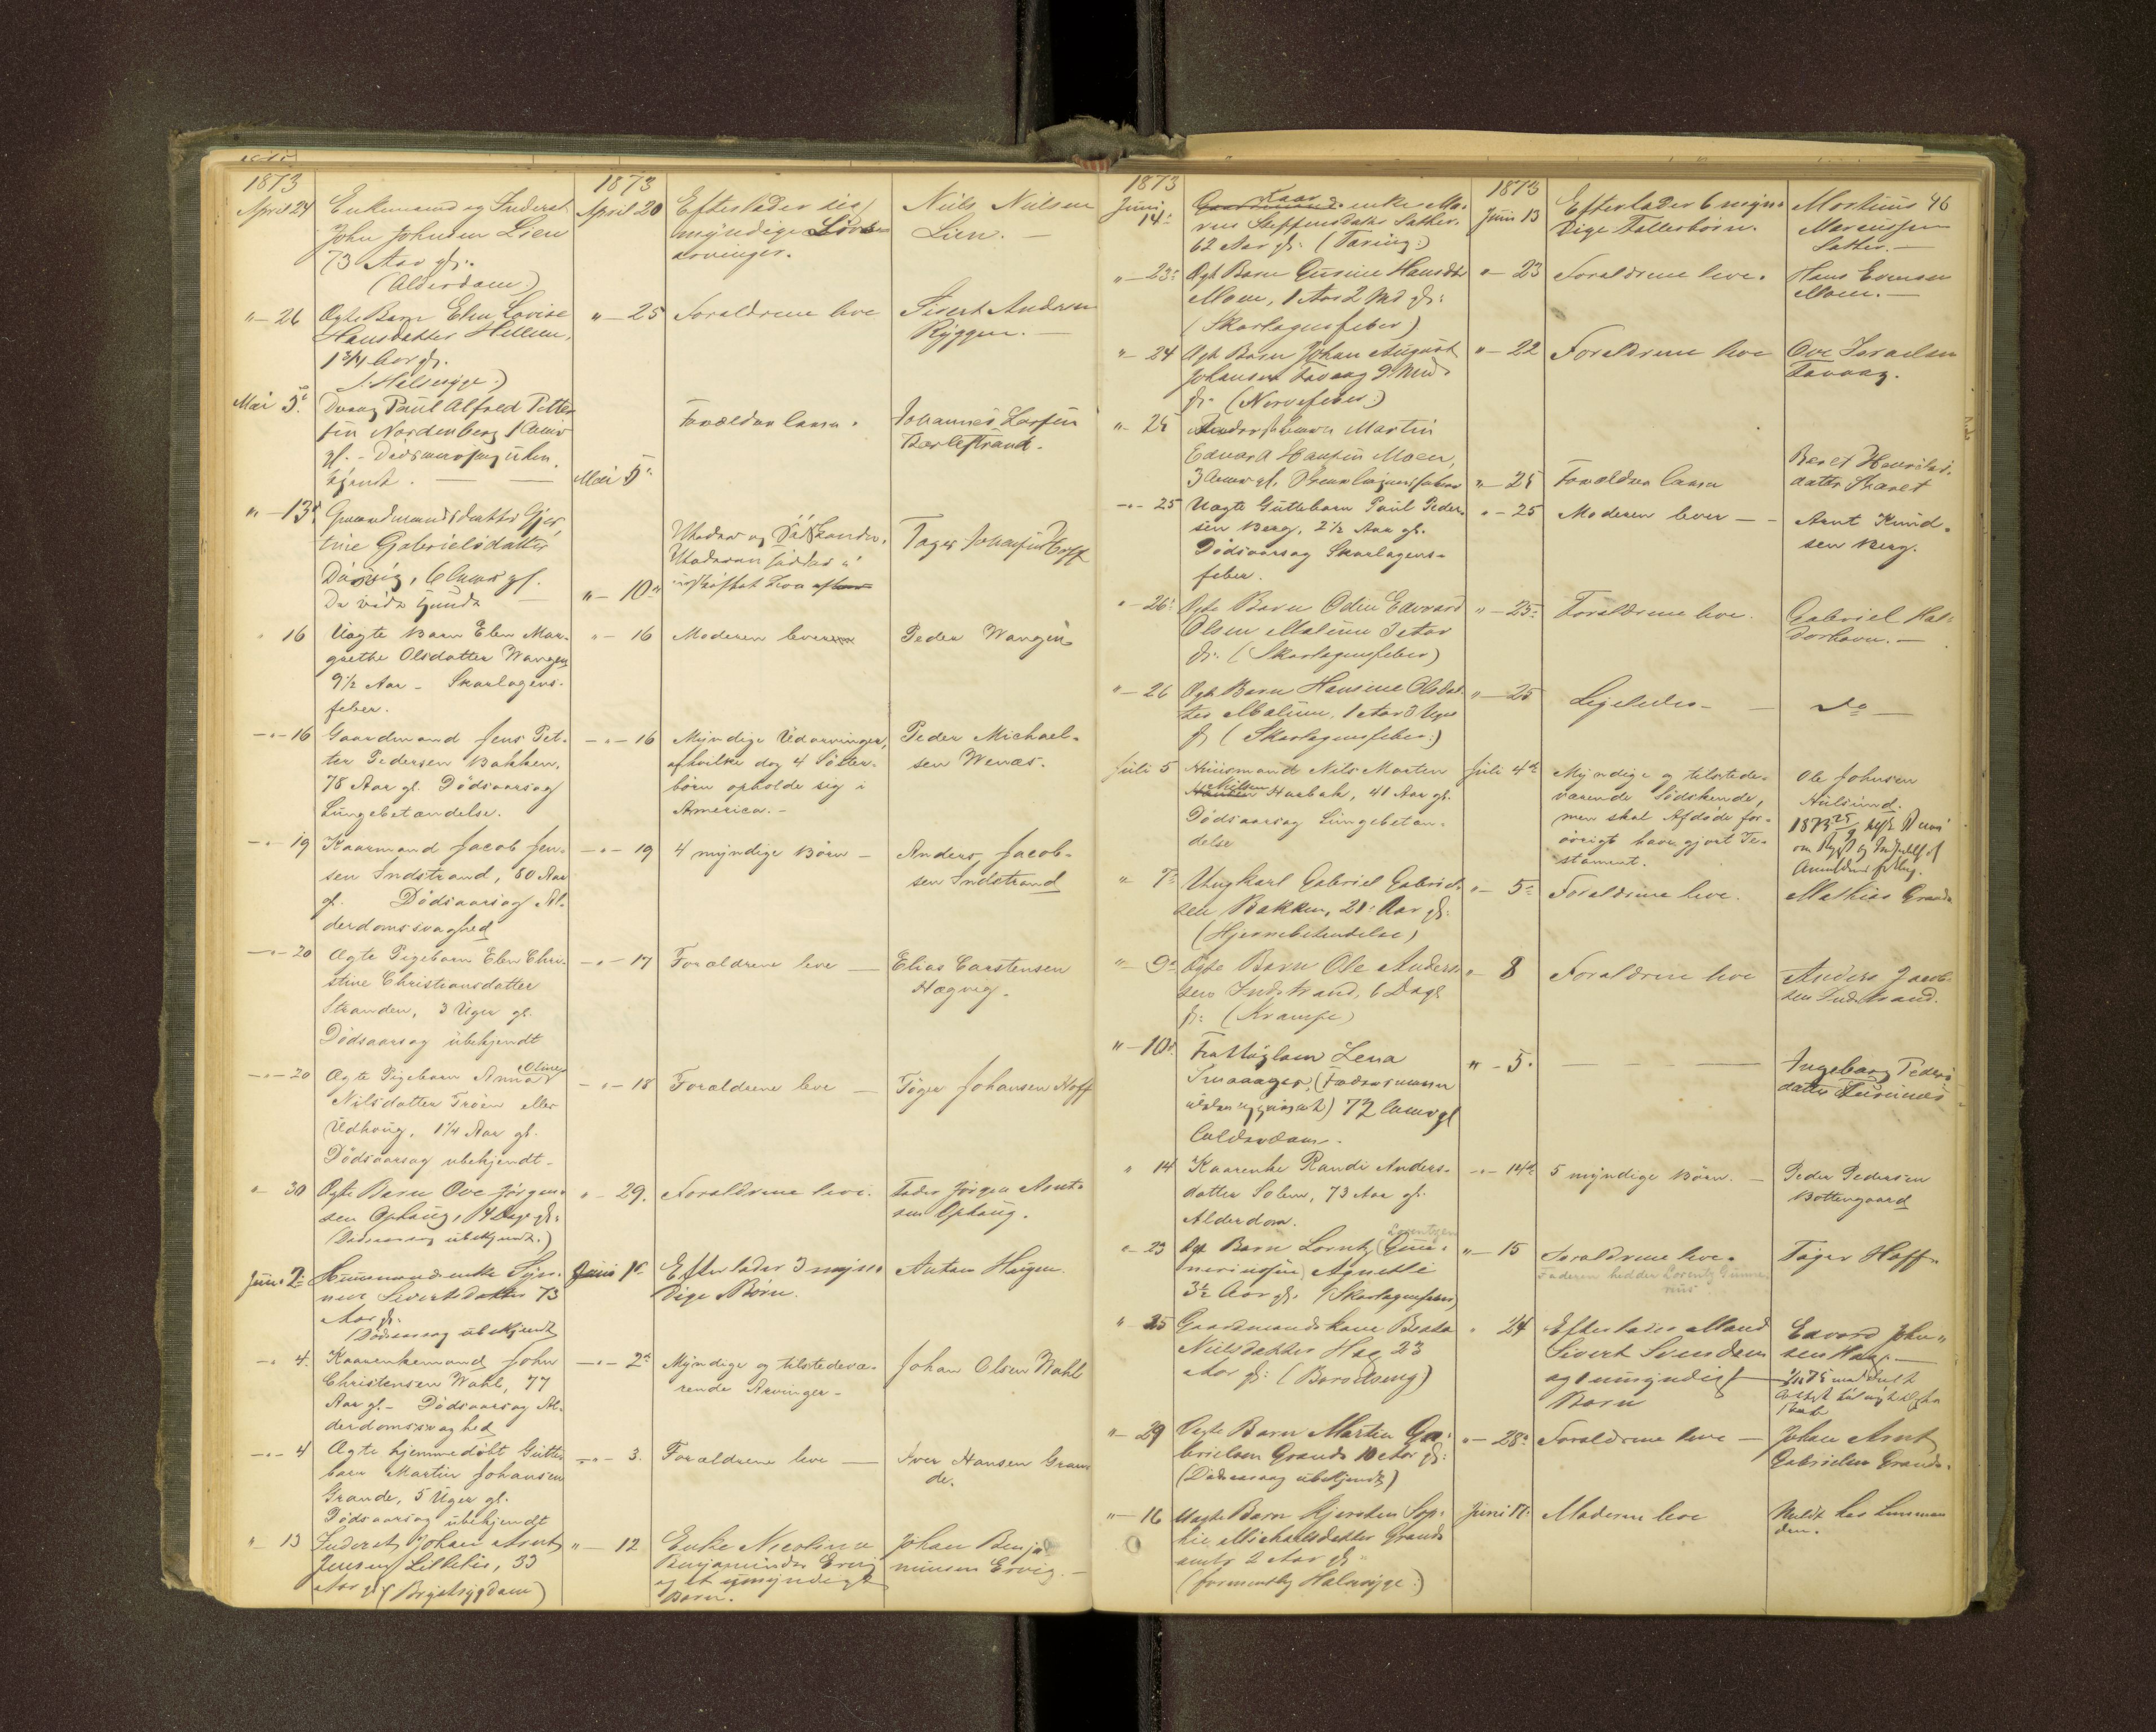 1873
1873
April 24
Enkemand og Inderst
John Johnsen Lien
73 Aar gl.
(Alderdom)
April 20
Efterlader sig
myndige
arvinger.
Niels Nielsen
Lien. —
"— 26
Ægte Barn Elen Lovise
Hansdatter Hellem,
1 3/4 Aar gl.
(: Halssyge :)
"— 25
Forældrene leve
Sivert Andersen
Ryggen. —
Mai 5te
Dreng Paul Alfred Petter
sen Nordenberg 1 Aar
gl. - Dødsaarsag ube
kjendt. — —
Mai 5te
Forældrene leve.
Johannes
"— 13de
Gaardmandsdatter Gjer
trine Gabrielsdatter
"— 10
Moder og Södskende.
Moderen sidder i
uskiftet Bo
Tøger Johansen Hoff
" 16
Uægte Barn Elen Mar-
grethe Olsdatter Wangen
9 1/2 Aar - Skarlagens-
feber.
"— 16
Moderen lever
Peder Wangen
—"— 16
Gaardmand Jens Pet-
ter Pedersen Bakken,
78 Aar gl. Dödsaarsag
Lungebetændelse.
—"— 16
Myndige Udarvinger,
afhvilke dog 4 Söster-
børn opholde sig i
America. -
Peder Michael-
sen Wenæs.
—"— 19
Kaarmand Jacob Jen-
sen Indstrand, 80 Aar
gl. Dödsaarsag Al-
derdomssvaghed
—"— 19
4 myndige Börn —
Anders Jacob-
sen Indstrand
—"— 20
Ægte Pigebarn Elen Chri-
stine Christiansdatter
Stranden, 3 Uger gl.
Dödsaarsag ubekjendt
—"— 17
Forældrene leve —
Elias Carstensen
Hægvig.
—"— 20
Ægte Pigebarn Anna Oline
Nilsdatter Trøen eller
Udhoug, 1 1/4 Aar gl.
Dödsaarsag ubekjendt -
—"— 18
Forældrene leve —
Töger Johansen Hoff
"— 30
Ægte Barn Ove Jørgen-
sen Ophaug, 14 Dage gl.
(Dødsaarsag ubekjendt.)
"— 29.
Forældrene leve.
Fader Jørgen Arnt-
sen Ophaug.
Juni 2
Huusmandsenke Syn-
növe Sivertsdatter 73
Aar gl.
(Dødsaarsag ubekjendt
Juni 1ste
Efterlader 3 myn-
dige Børn.
Anton Haugen
—" 4.
Kaarenkemand John
Christensen Wahl, 77
Aar gl. - Dödsaarsag Al-
derdomssvaghed
—"— 2den
Myndige og tilstedevæ-
rende Arvinger -
Johan Olsen Wahl
—"— 4
Ægte hjemmedøbt Gutte-
barn Martin Johansen
Grande, 5 Uger gl.
Dödsaarsag ubekjendt
—"— 3.
Forældrene leve —
Iver Hansen Gran-
de.
"— 13
Inderst Johan Arnt
Jensen 33
Aar gl. (Brystsygdom)
"— 12
Enke Nicolina
Benjaminsdr Ervig
og et umyndigt
Barn.
Johan Benja
minsen Ervig. —
1873
1873
46
Juni
14
Kaar
enke Ma-
ren Steffensdatter Sæther
62 Aar gl. (Tæring)
Juni 13
Efterlader 6 myn-
dige Fællesbörn.
Mortinus
Marcussen
Sæther. —
"— 23
Ægte Barn Gusine Hansdtr
Moen, 1 Aar 2 Md gl.
(Skarlagensfeber)
"— 23
Forældrene leve.
Hans Evensen
Moen. —
"— 24
Ægte Barn Johan August
Johansen Tavaag 9 Md
gl. (Nervefeber)
"— 22
Forældrene leve
Ove Israelsen
Tavaag.
"— 25
Martin
Edvard Hansen Moen,
3 Aar gl. Skarlagensfeber
"— 25
Forældrene leve
—"— 25
Uægte Guttebarn Paul Peder-
sen Berg, 2 1/2 Aar gl.
Dödsaarsag Skarlagens-
feber.
"— 25
Moderen lever — -
Arnt Knud-
sen Berg.
"— 26
Ægte Barn Odin Edvard
Olsen 3 Aar
gl. (Skarlagensfeber)
"— 25
Forældrene leve.
Gabriel Hal-
dorhavn. —
"— 26
Ægte Barn Hansine Olsdat-
ter 1 Aar 3 Uger
gl. (Skarlagensfeber)
"— 25
Ligeledes — —
Do —
Juli 5
Huusmand Nils Morten
Nilsen Harbak, 41 Aar gl.
Dödsaarsag Lungebetæn-
delse
Juli 4de
Myndige og tilstede-
værende Södskende,
men skal Afdöde for-
övrigt have gjort Te-
stament.
Ole Johnsen
Hulsund.
1873 25/9
"— 7
Ungkarl Gabriel Gabriel-
sen Bakken, 21 Aar gl.
(Hjernebetændelse)
"— 5
Forældrene leve.
Mathias Grande
"— 9
Ægte Barn Ole Anders-
sen Indstrand, 6 Dage
gl. (Krampe)
"— 8
Forældrene leve
Anders Jacob-
sen Indstrand.
"— 10
Fattiglem Lena
77 Aar gl
Alderdom.
"— 5.
— — —
Ingeborg Peders
datter
" 14
Kaarenke Randi Anders-
datter Solem, 73 Aar gl.
Alderdom.
—"— 14de
5 myndige Börn. —
Peder Pedersen
Bottengaard
"— 23
Ægte Barn Lorntz (Gun-
neriussen) Agnetli
Lorentzen
3 1/2 Aar gl. (Skarlagensfeber)
"— 15
Forældrene leve.
Faderen hedder Lorentz Gunne-
rius
Tøger Hoff
"— 25
Gaardmandskone Beata
Nielsdatter Hag 23
Aar gl: (Barselseng)
" 24
Efterlader Mand
Sivert Svendsen
og 1 umyndigt
Barn
Edvard John-
sen Haga. —
"— 29
Ægte Barn Martin Ga-
brielsen Grande 10 Aar gl:
(Dødsaarsag ubekjendt)
"— 28
Forældrene leve —
Johan Arnt
Gabrielsen Grande.
"— 16
Uægte Barn Kjersten Sop-
hie Michaelsdatter Grande
2 Aar gl.
(formentlig Halssyge)
Juni 11
Moderen leve
Meldt hos Lensman
den.